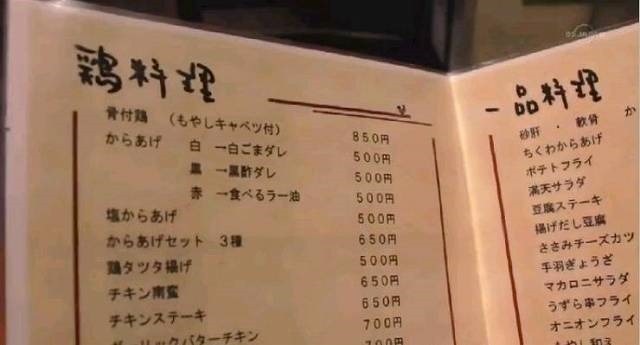 鶏料理
骨付鶏 (もやしキャベツ付) 850円
からあげ 白 →白ごまダレ 500円
黒 →黒酢ダレ 500円
赤 →食べるラー油 500円
塩からあげ 500円
からあげセット 3種 650円
鶏タツタ揚げ 500円
チキン南蛮 650円
チキンステーキ 650円
ガーリックバターチキン 700円
一品料理
砂肝・軟骨 か
ちくわからあげ
ポテトフライ
満天サラダ
豆腐ステーキ
揚げだし豆腐
ささみチーズカツ
手羽ぎょうざ
マカロニサラダ
うずら串フライ
オニオンフライ
もやし和え